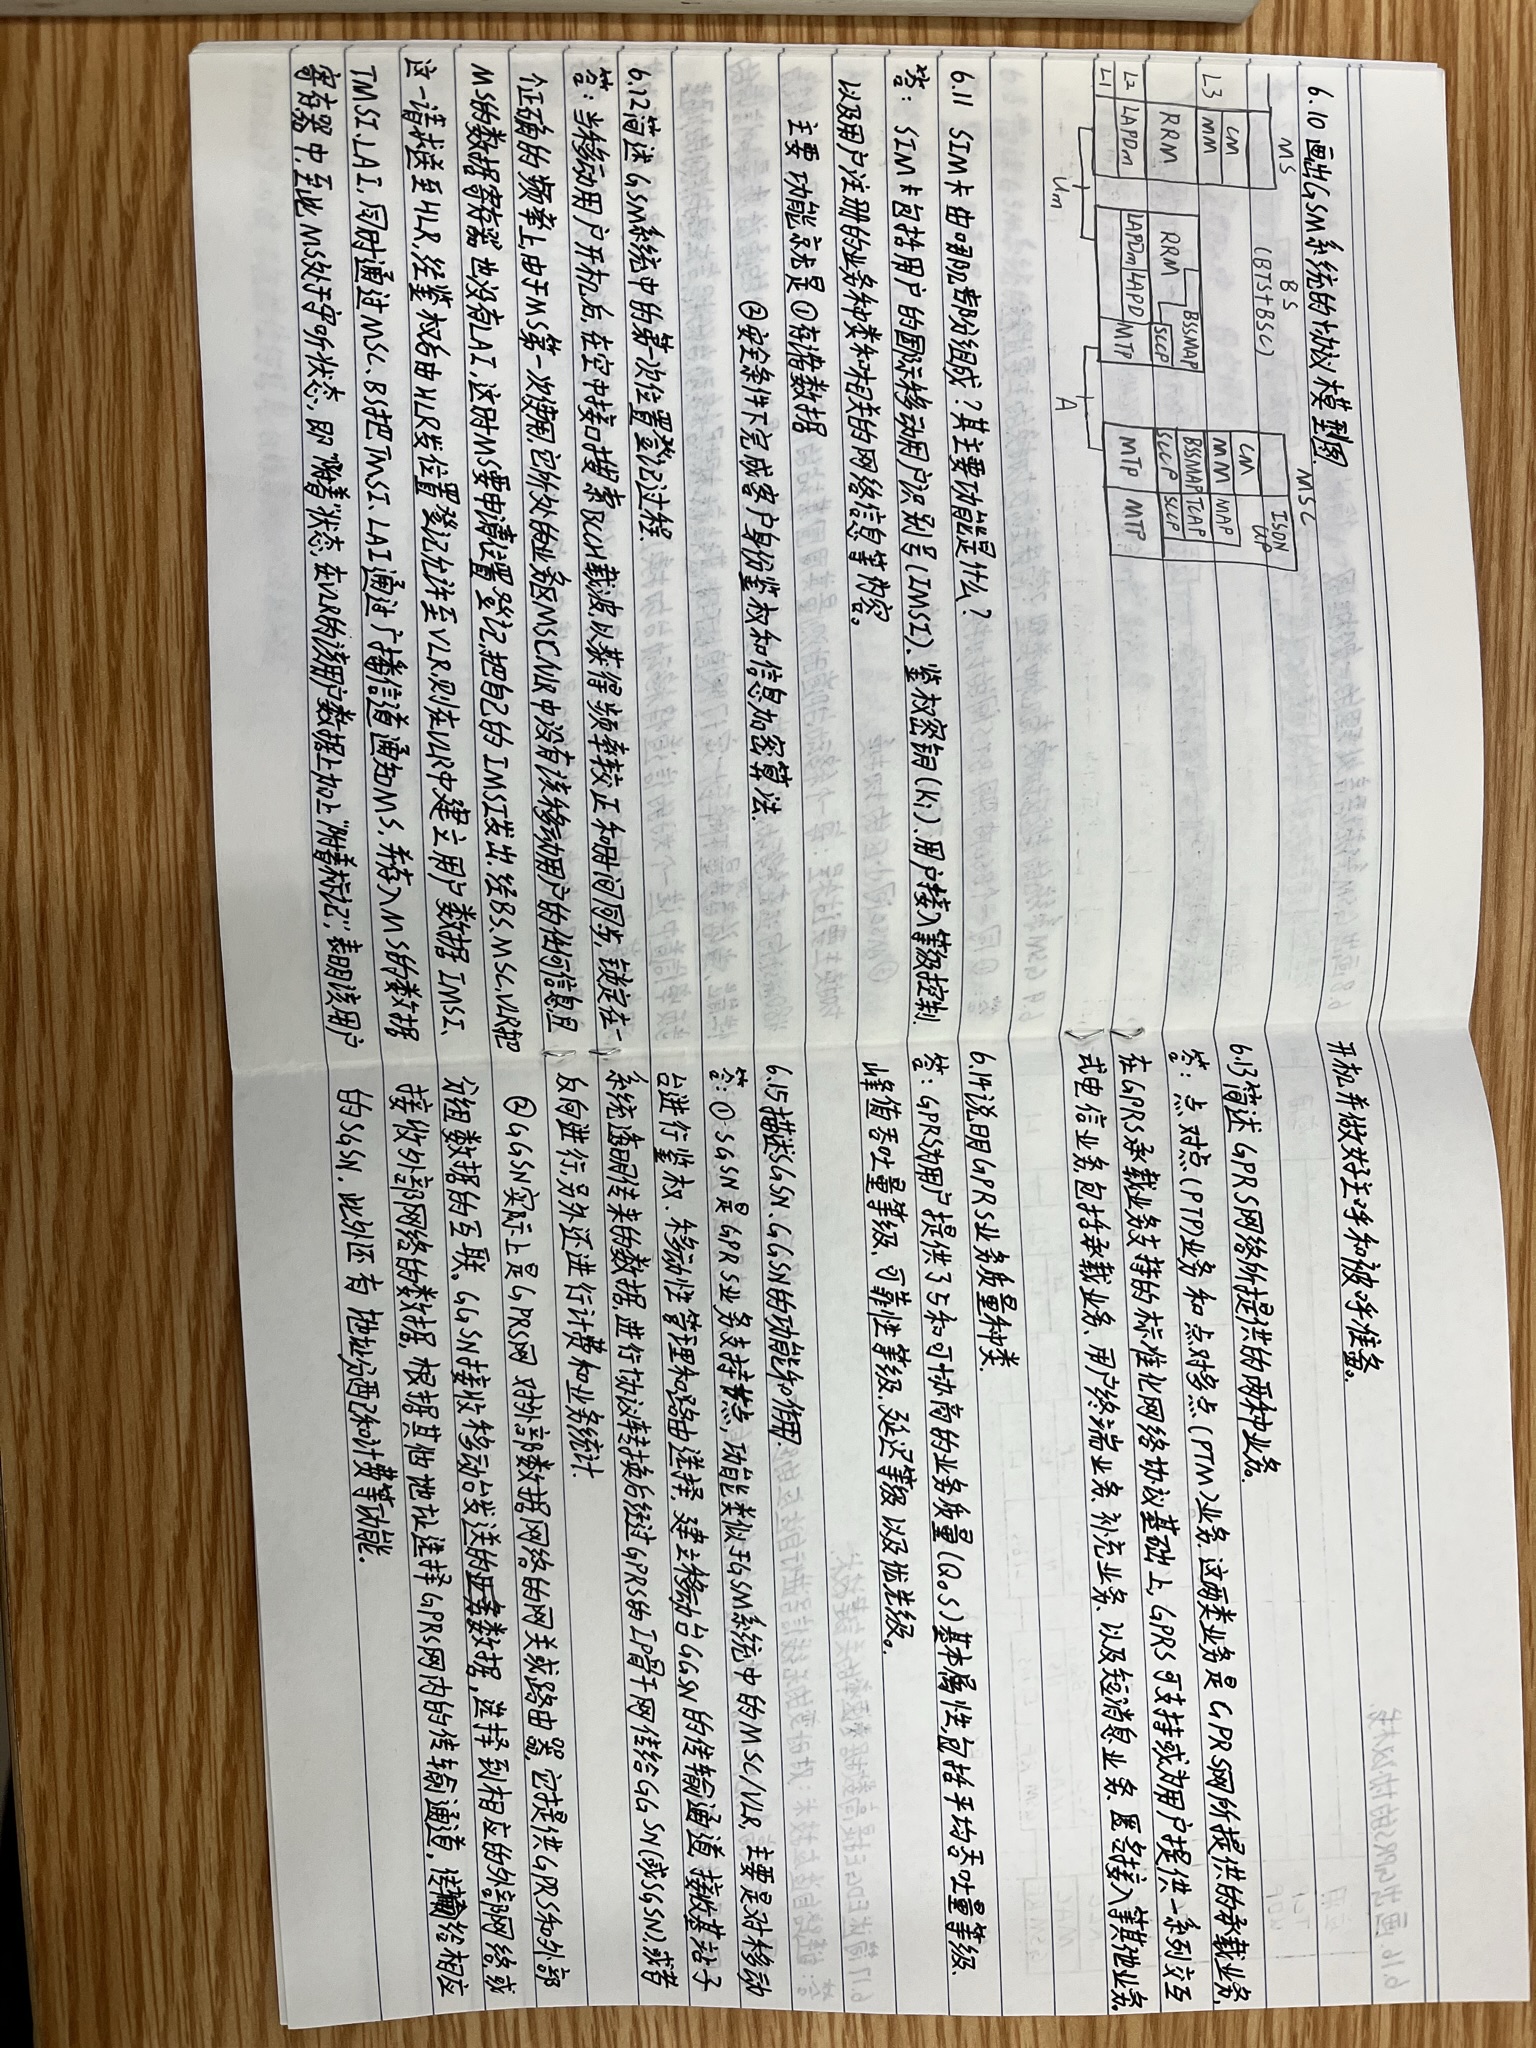 6.10 画出GSM系统的协议模型图.
MS
BS
(BTS+BSC)
MSC
L3
L2
L1
CM
MM
RRM
LAPDm
RRM
BSSMAP
SCCP
LAPDm
LAPD
MTP
CM
MM
BSSMAP
SCCP
MTP
ISDN
UP
MAP
TCAP
SCCP
MTP
Um
A
6.11 SIM卡由哪几部分组成?其主要功能是什么?
答: SIM卡包括用户的国际移动用户识别号(IMSI)、鉴权密钥(Ki)、用户接入等级控制.
以及用户注册的业务种类和相关的网络信息等内容。
主要功能就是①存储数据
②安全条件下完成客户身份鉴权和信息加密算法.
6.12简述GSM系统中的第一次位置登记过程.
答: 当移动用户开机后,在空中接口搜索BCCH载波,以获得频率较正和时间同步,锁定在一
个正确的频率上,由于MS第一次使用,它所处的业务区MSC/VLR中没有该移动用户的任何信息,且
MS的数据寄存器也没有LAI,这时MS要申请位置登记,把自己的IMSI发出,经BS、MSC、VLR把
这一请求送至HLR,经鉴权后由HLR发位置登记允许至VLR,则在VLR中建立用户数据IMSI、
TMSI、LAI,同时通过MSC、BS把TMSI、LAI通过广播信道通知MS,并存入MS的数据
寄存器中,至此MS处于守听状态,即"附着"状态,在VLR的该用户数据上加上"附着标记",表明该用户
开机并做好主呼和被呼准备。
6.13简述GPRS网络所提供的两种业务。
答: 点对点(PTP)业务和点对多点(PTM)业务,这两类业务是GPRS网所提供的承载业务,
在GPRS承载业务支持的标准化网络协议基础上,GPRS可支持或为用户提供一系列交互
式电信业务,包括承载业务、用户终端业务、补充业务、以及短消息业务、匿名接入等其他业务.
6.14说明GPRS业务质量种类.
答: GPRS为用户提供了5和可协商的业务质量(QoS)基本属性,包括平均吞吐量等级、
峰值吞吐量等级、可靠性等级、延迟等级以及优先级。
6.15描述SGSN、GGSN的功能和作用.
答: ①SGSN是GPRS业务支持节点,功能类似于GSM系统中的MSC/VLR,主要是对移动
台进行鉴权、移动性管理和路由选择,建立移动台GGSN的传输通道,接收基站子
系统透明传来的数据,进行协议转换后经过GPRS的IP骨干网传给GGSN(或SGSN),或者
反向进行,另外还进行计费和业务统计.
②GGSN实际上是GPRS网对外部数据网络的网关或路由器,它提供GPRS和外部
分组数据的互联。GGSN接收移动台发送的数据,选择到相应的外部网络,或
接收外部网络的数据,根据其他地址选择GPRS网内的传输通道,传输给相应
的SGSN,此外还有地址分配和计费等功能.